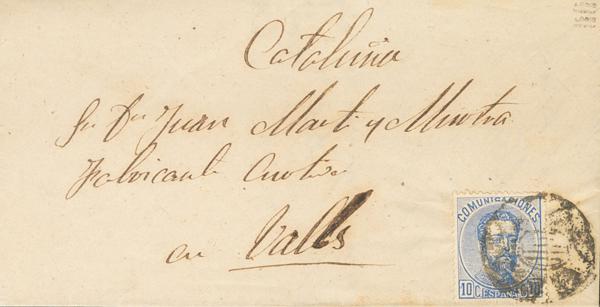 Cataluña
Sr. Dn. Juan Martí y
Fabricante
en Valls
COMUNICACIONES
10 C. ESPAÑA 10